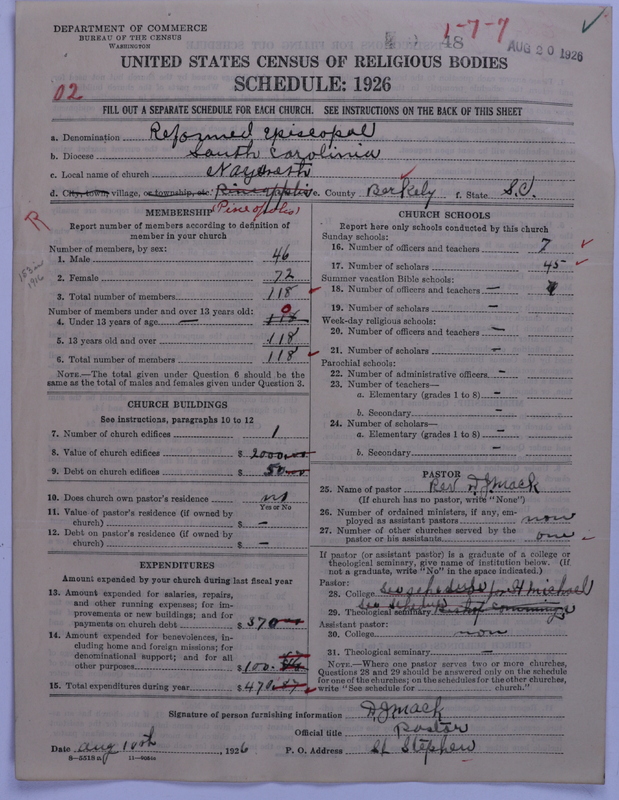 DEPARTMENT OF COMMERCE
BUREAU OF THE CENSUS
WASHINGTON
48
1-7-7
AUG 20 1926
UNITED STATES CENSUS OF RELIGIOUS BODIES
SCHEDULE: 1926
02
FILL OUT A SEPARATE SCHEDULE FOR EACH CHURCH. SEE INSTRUCTIONS ON THE BACK OF THIS SHEET
a. Denomination Reformed Episcopal
b. Diocese South Carolinia
c. Local name of church Nazereth
d. City, town, village, or township, etc. e. County Berkely f. State S.C.
(Pineopolis)
R
MEMBERSHIP
Report number of members according to definition of
member in your church
Number of members, by sex:
1. Male 46
2. Female 72
3. Total number of members 118
Number of members under and over 13 years old:
4. Under 13 years of age — 0
5. 13 years old and over 118
6. Total number of members 118
NOTE.—The total given under Question 6 should be the
same as the total of males and females given under Question 3.
CHURCH BUILDINGS
See instructions, paragraphs 10 to 12
7. Number of church edifices 1
8. Value of church edifices $ 2000.00
9. Debt on church edifices $ 50.00
10. Does church own pastor's residence no
Yes or No
11. Value of pastor's residence (if owned by
church) $ —
12. Debt on pastor's residence (if owned by
church) $ —
EXPENDITURES
Amount expended by your church during last fiscal year
13. Amount expended for salaries, repairs,
and other running expenses; for im-
provements or new buildings; and for
payments on church debt $ 370.00
14. Amount expended for benevolences, in-
cluding home and foreign missions; for
denominational support; and for all
other purposes $ 100.
15. Total expenditures during year $ 470.
CHURCH SCHOOLS
Report here only schools conducted by this church
Sunday schools:
16. Number of officers and teachers 7
17. Number of scholars 45
Summer vacation Bible schools:
18. Number of officers and teachers —
19. Number of scholars —
Week-day religious schools:
20. Number of officers and teachers —
21. Number of scholars —
Parochial schools:
22. Number of administrative officers —
23. Number of teachers—
a. Elementary (grades 1 to 8) —
b. Secondary —
24. Number of scholars—
a. Elementary (grades 1 to 8) —
b. Secondary —
PASTOR
25. Name of pastor Rev D.J Mack
(If church has no pastor, write "None")
26. Number of ordained ministers, if any, em-
ployed as assistant pastors none
27. Number of other churches served by the
pastor or his assistants one
If pastor (or assistant pastor) is a graduate of a college or
theological seminary, give name of institution below. (If
not a graduate, write "No" in the space indicated.)
Pastor:
28. College See schedule for St Michael
29. Theological seminary See schedule
Assistant pastor:
30. College non
31. Theological seminary —
NOTE.—Where one pastor serves two or more churches,
Questions 28 and 29 should be answered only on the schedule
for one of the churches; on the schedules for the other churches,
write "See schedule for church."
Signature of person furnishing information D.J Mack
Official title Pastor
Date Aug 10th, 1926 P. O. Address St Stephen
8-5518 a